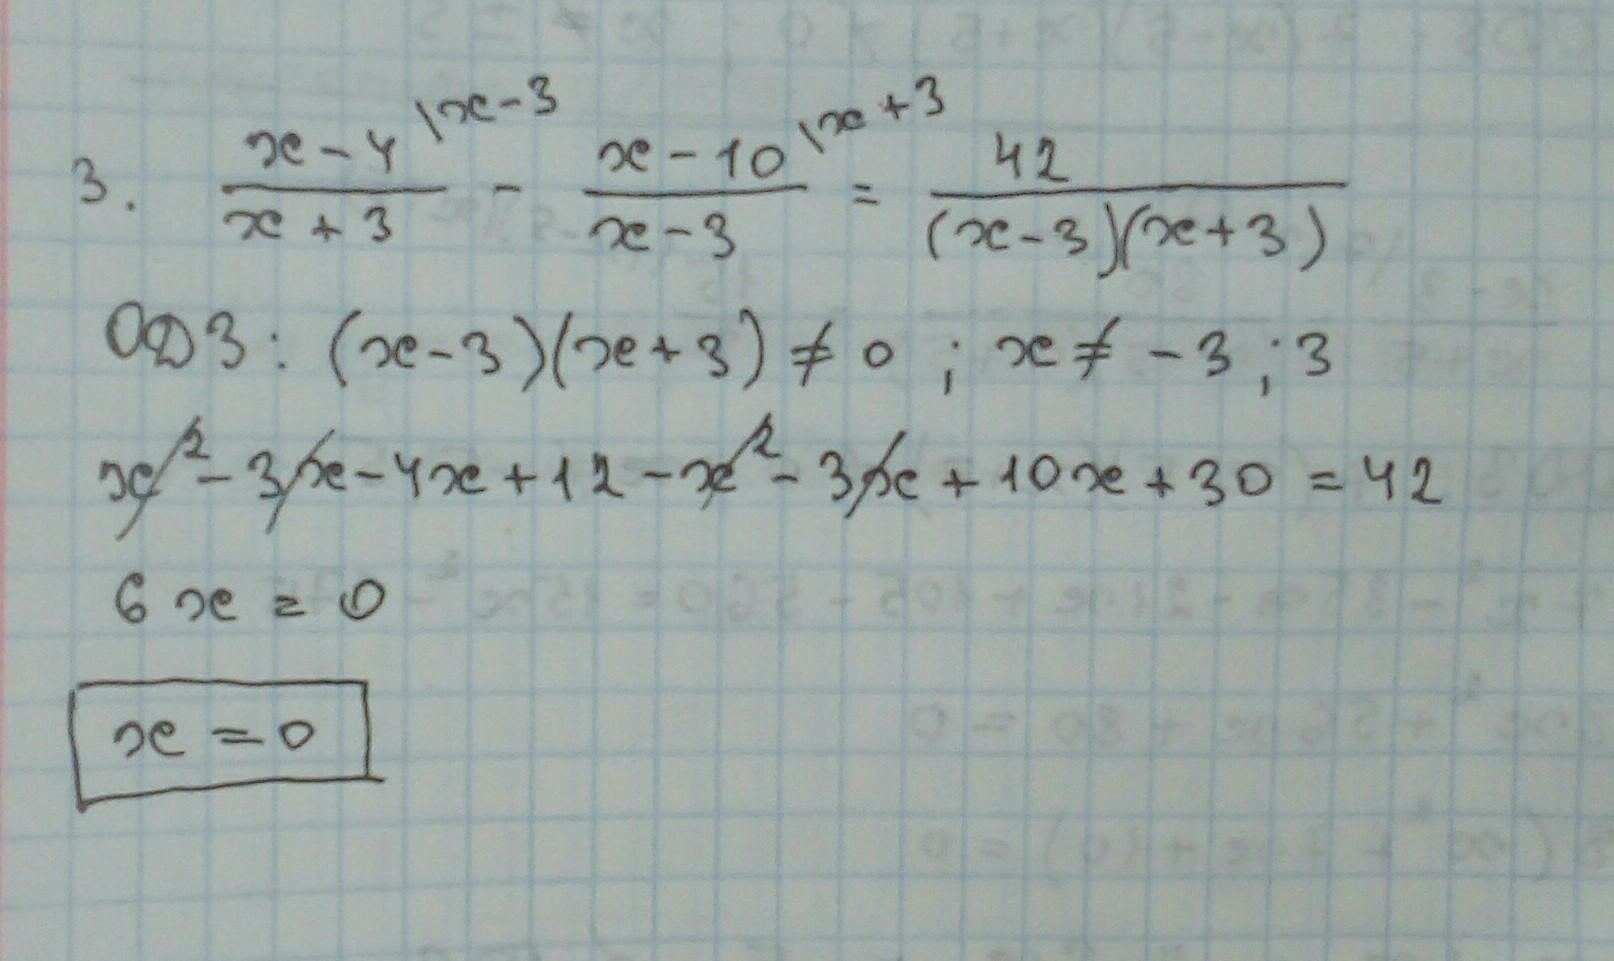 3. (x-4)/(x+3) \x-3 - (x-10)/(x-3) \x+3 = 42/((x-3)(x+3))
ОДЗ: (x-3)(x+3) ≠ 0 ; x ≠ -3 ; 3
x² - 3x - 4x + 12 - x² - 3x + 10x + 30 = 42
6x = 0
x = 0